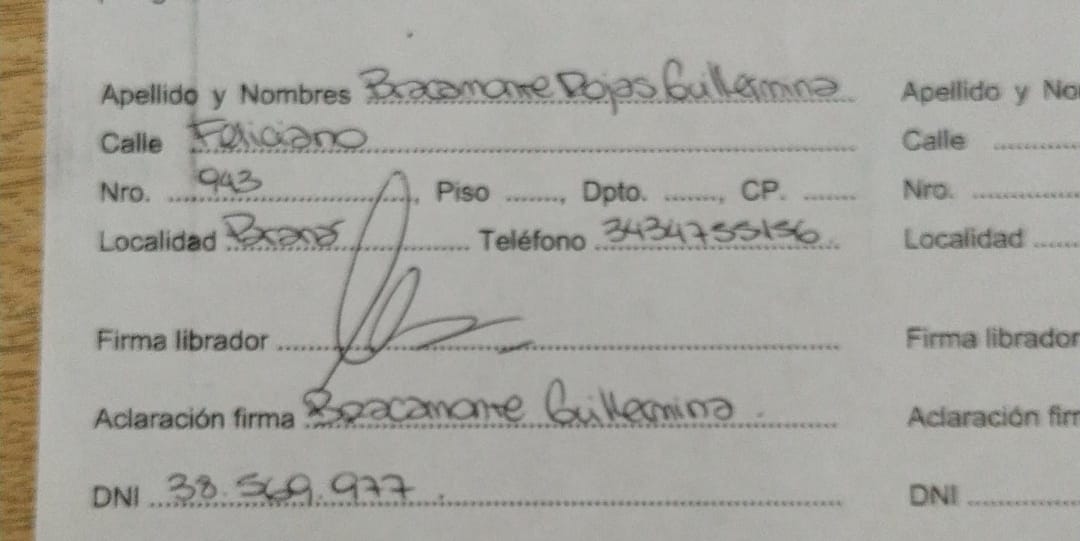 Apellido y Nombres Bracamonte Rojas Guillermina
Calle Feliciano
Nro. 943, Piso ......., Dpto. ......., CP. .......
Localidad Teléfono 3434755156
Firma librador
Aclaración firma Bracamonte Guillermina
DNI 38.569.977
Apellido y No
Calle
Nro.
Localidad
Firma librador
Aclaración firm
DNI